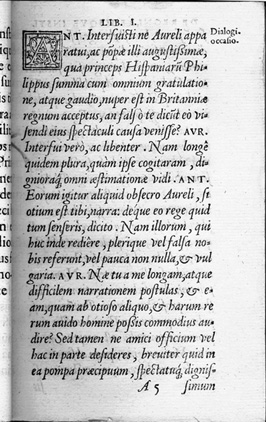 LIB. I.
ANT. Interfuisti nè Aureli appa
Dialogi
occasio.
ratui, ac põpæ illi augustissimæ,
qua princeps Hispaniarũ Phi-
lippus summa cum omnium gratulatio-
ne, atque gaudio, nuper est in Britanniæ
regnum acceptus, an falsò te dicũt eò vi-
sendi eius spectaculi causa venisse? AVR.
Interfui verò, ac libenter. Nam longè
quidem plura, quàm ipse cogitaram, di-
gnioraq; omni æstimatione vidi. ANT.
Eorum igitur aliquid obsecro Aureli, si
otium est tibi, narra: deque eo rege quid
tum senseris, dicito. Nam illorum, qui
huc inde rediêre, plerique vel falsa no-
bis referunt, vel pauca non nulla, & vul
garia. AVR. Næ tu a me longam, atque
difficilem narrationem postulas, & e-
am, quam ab otioso aliquo, & harum re
rum auido homine possis commodius au-
dire? Sed tamen ne amici officium vel
hac in parte desideres, breuiter quid in
ea pompa præcipuum, spectatuq́; dignis-
A 5 simum